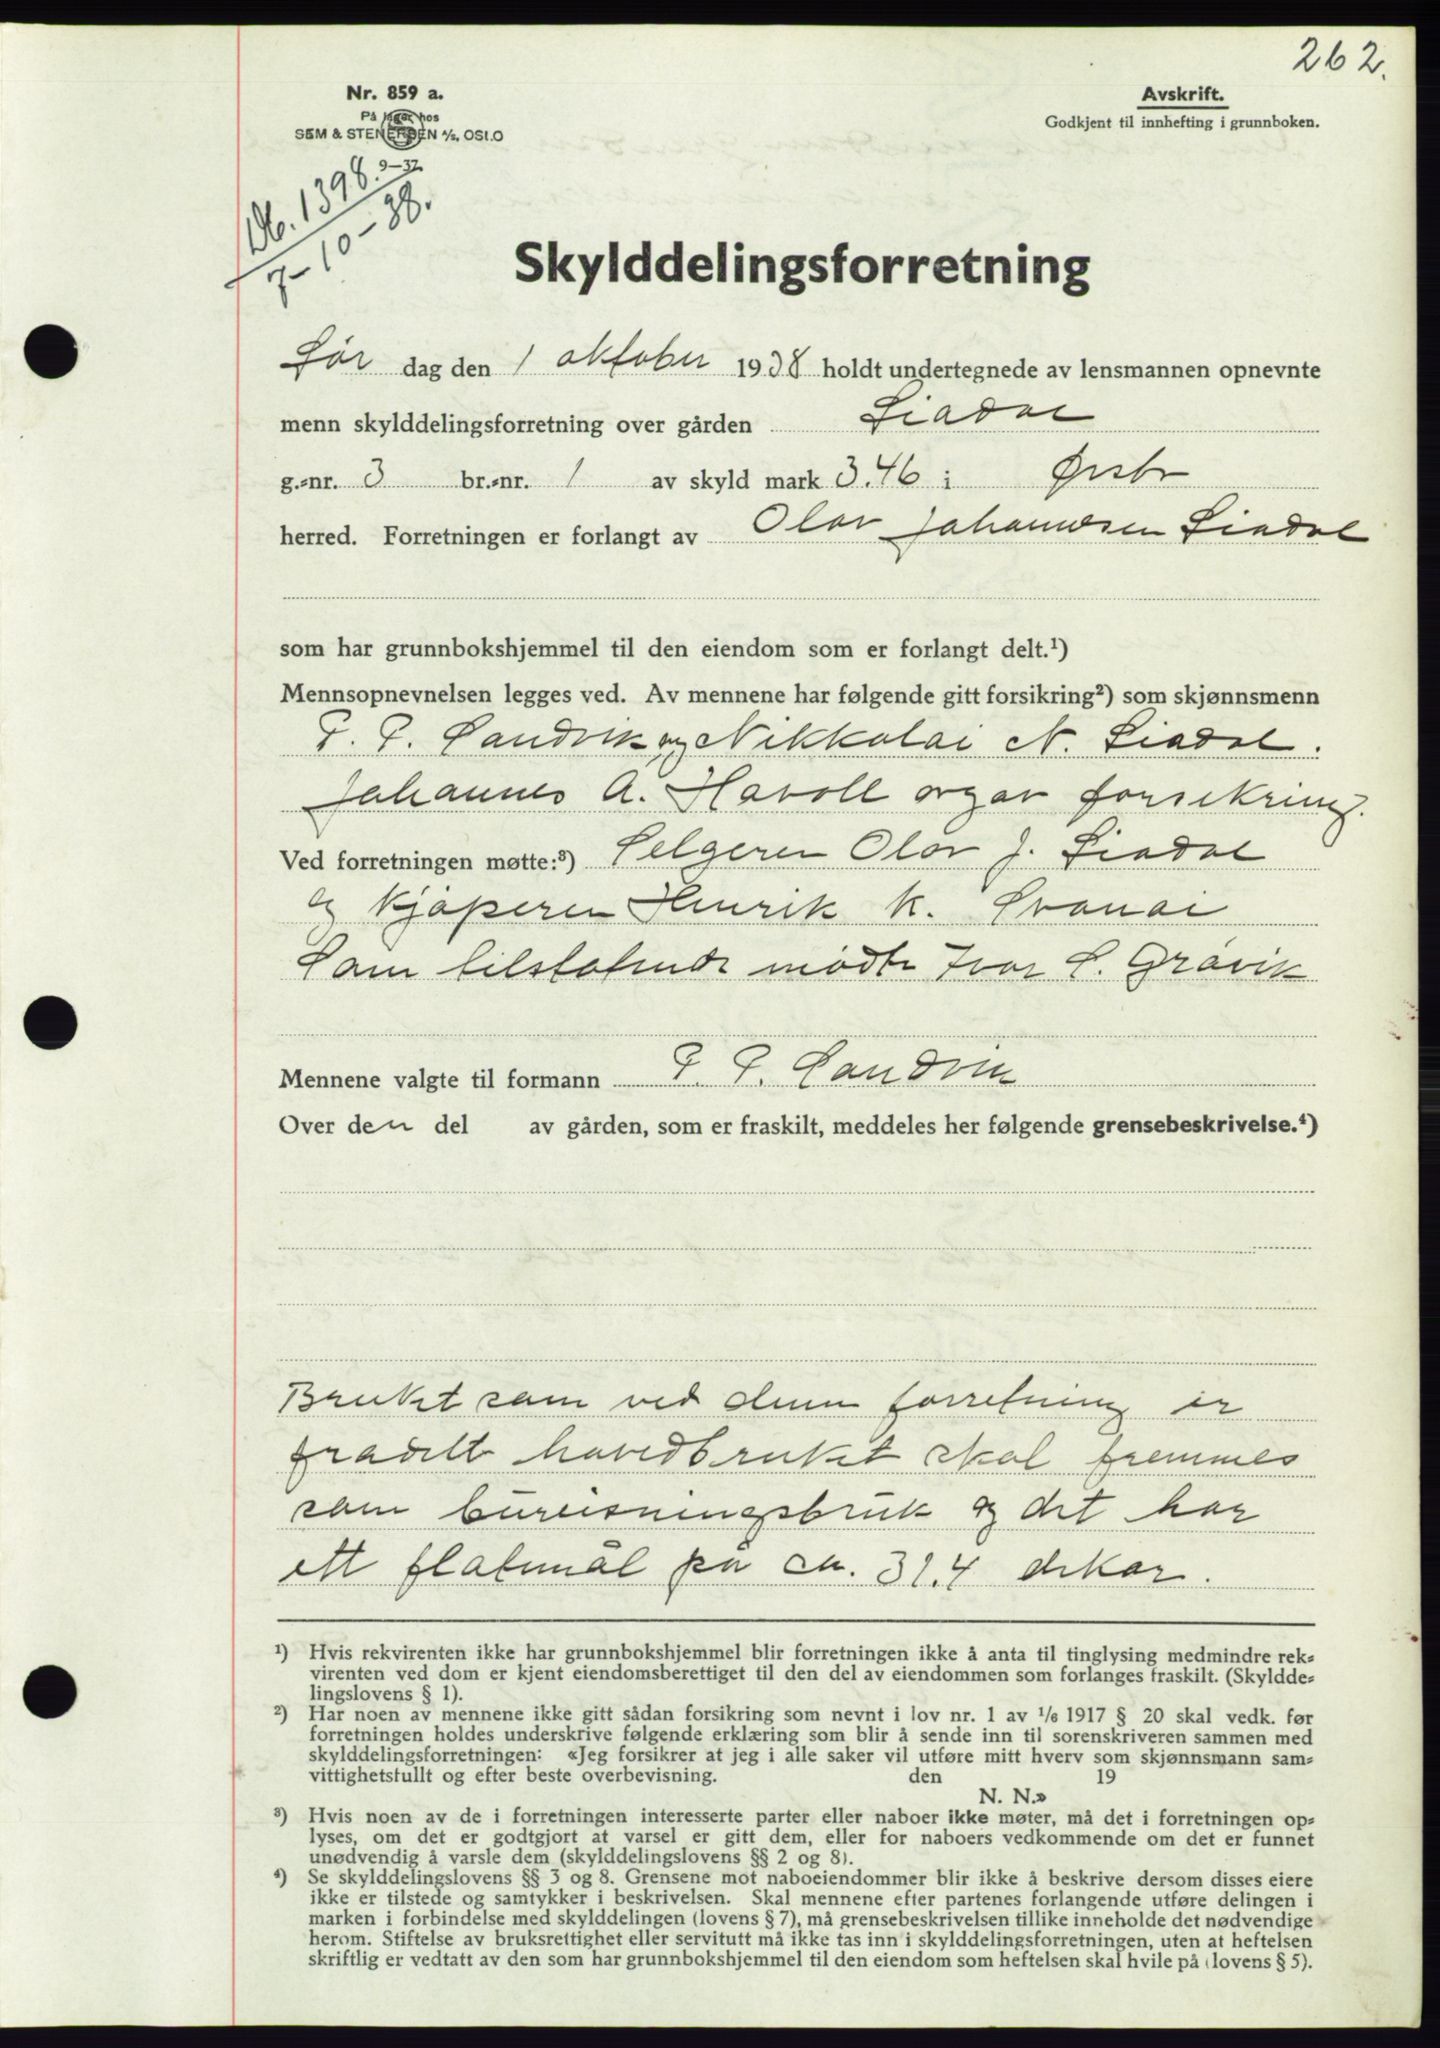 262.
Nr. 859 a.
På lager hos
SEM & STENERSEN A/S, OSLO
9—37
Avskrift.
Godkjent til innhefting i grunnboken.
Db. 1398.
7-10-38.
Skylddelingsforretning
Lør dag den 1 oktober 1938 holdt undertegnede av lensmannen opnevnte
menn skylddelingsforretning over gården Liadal
g.-nr. 3 br.-nr. 1 av skyld mark 3.46 i Ørsta
herred. Forretningen er forlangt av Olav Johannesen Liadal
som har grunnbokshjemmel til den eiendom som er forlangt delt.¹)
Mennsopnevnelsen legges ved. Av mennene har følgende gitt forsikring²) som skjønnsmenn
P. P. Sandvik og Nikkolai N. Liadal.
Johannes A. Havoll avgav forsikring.
Ved forretningen møtte:³) Selgeren Olav J. Liadal
og kjøperen Henrik K.
Som tilstøtende mødte Ivar L. Grøvik
Mennene valgte til formann P. P. Sandvik
Over den del av gården, som er fraskilt, meddeles her følgende grensebeskrivelse.⁴)
Bruket som ved denne forretning er
fradelt hovedbruket skal fremmes
som bureisningsbruk og det har
ett flatemål på ca. 31.4 dekar.
¹) Hvis rekvirenten ikke har grunnbokshjemmel blir forretningen ikke å anta til tinglysing medmindre rek-
virenten ved dom er kjent eiendomsberettiget til den del av eiendommen som forlanges fraskilt. (Skyldde-
lingslovens § 1).
²) Har noen av mennene ikke gitt sådan forsikring som nevnt i lov nr. 1 av 1/6 1917 § 20 skal vedk. før
forretningen holdes underskrive følgende erklæring som blir å sende inn til sorenskriveren sammen med
skylddelingsforretningen: «Jeg forsikrer at jeg i alle saker vil utføre mitt hverv som skjønnsmann sam-
vittighetsfullt og efter beste overbevisning. den 19
N. N.»
³) Hvis noen av de i forretningen interesserte parter eller naboer ikke møter, må det i forretningen op-
lyses, om det er godtgjort at varsel er gitt dem, eller for naboers vedkommende om det er funnet
unødvendig å varsle dem (skylddelingslovens §§ 2 og 8).
⁴) Se skylddelingslovens §§ 3 og 8. Grensene mot naboeiendommer blir ikke å beskrive dersom disses eiere
ikke er tilstede og samtykker i beskrivelsen. Skal mennene efter partenes forlangende utføre delingen i
marken i forbindelse med skylddelingen (lovens § 7), må grensebeskrivelsen tillike inneholde det nødvendige
herom. Stiftelse av bruksrettighet eller servitutt må ikke tas inn i skylddelingsforretningen, uten at heftelsen
skriftlig er vedtatt av den som har grunnbokshjemmel til den eiendom som heftelsen skal hvile på (lovens § 5).